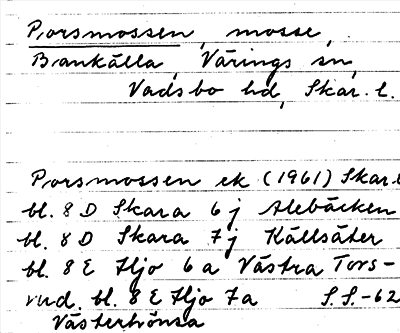 Porsmossen, mosse,
Bankälla, Värings sn,
Vadsbo hd, Skar. l.
Porsmossen ek (1961) Skar. l
bl. 8 D Skara 6 j Alebäcken
bl. 8 D Skara 7 j Källsäter
bl. 8 E Hjo 6 a Västra Tors-
rud. bl. 8 E Hjo 7a S.S.-62
Västertrönsa